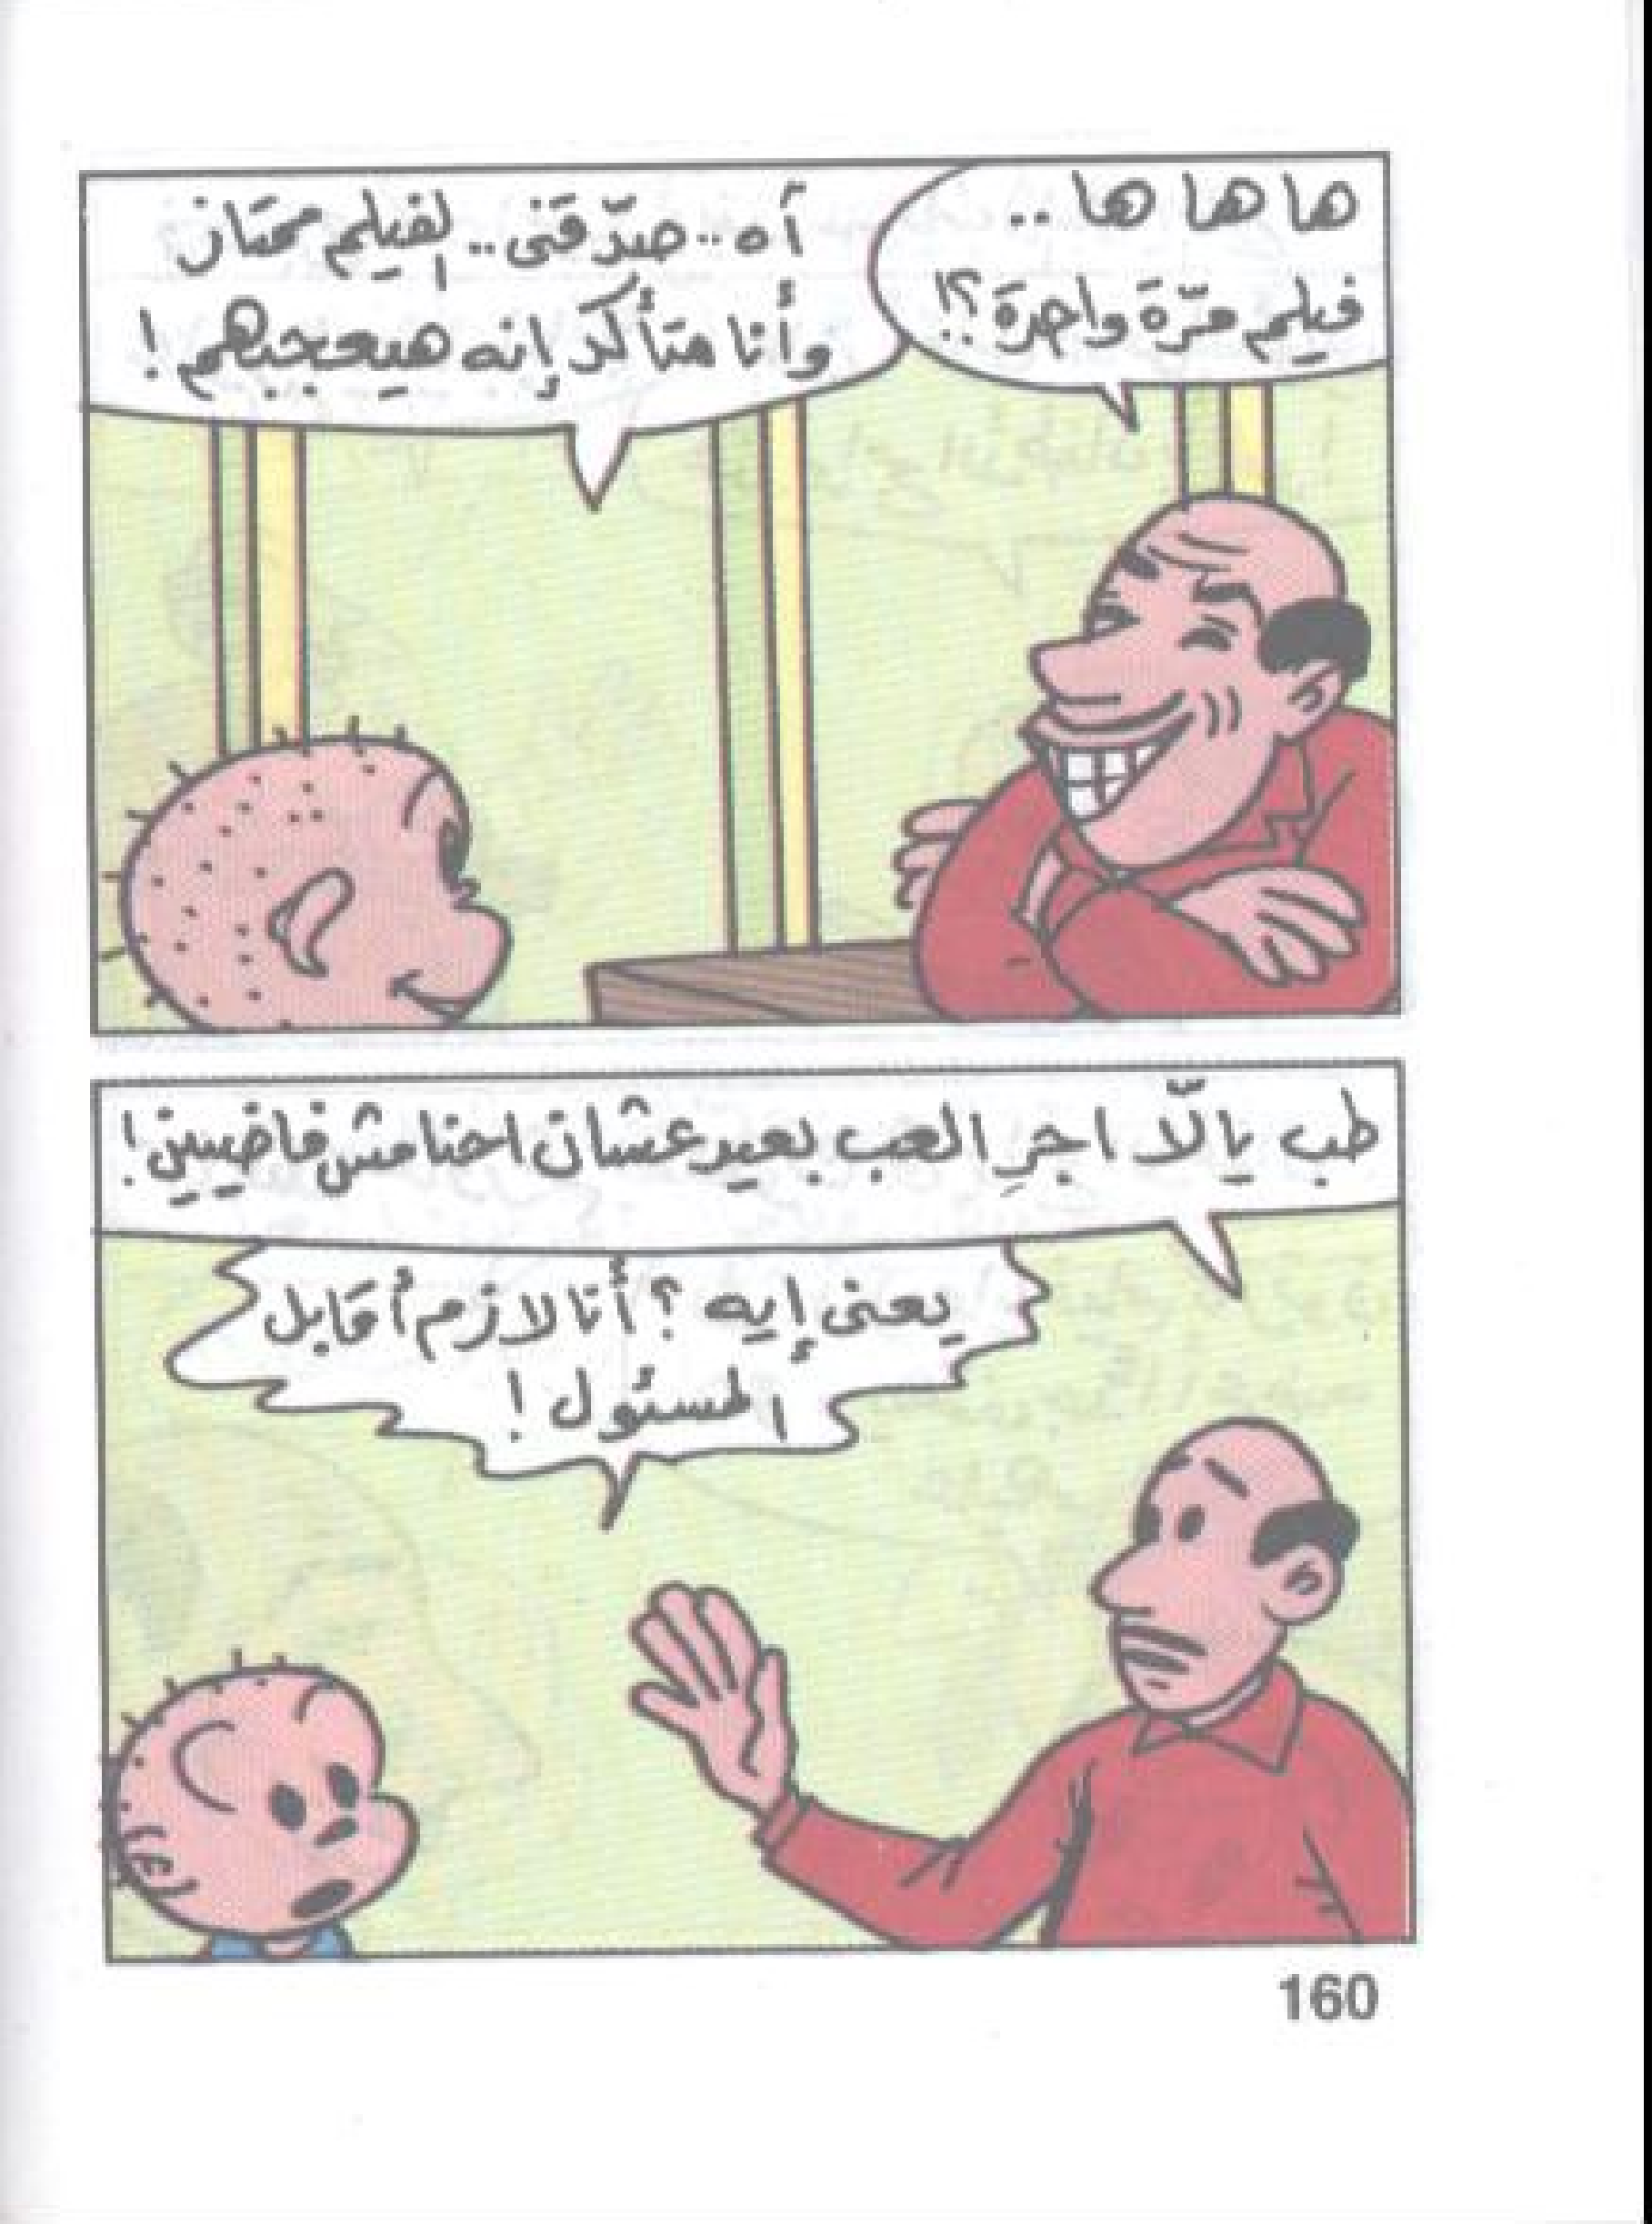 ها ها ها ..
فيلم مرّة واحدة؟!
آه .. صدّقنى .. الفيلم ممتاز
وأنا متأكد إنه هيعجبهم!
طب يالّا اجرِ العب بعيد عشان احنا مش فاضيين!
يعنى إيه؟ أنا لازم أقابل
المسئول!
160